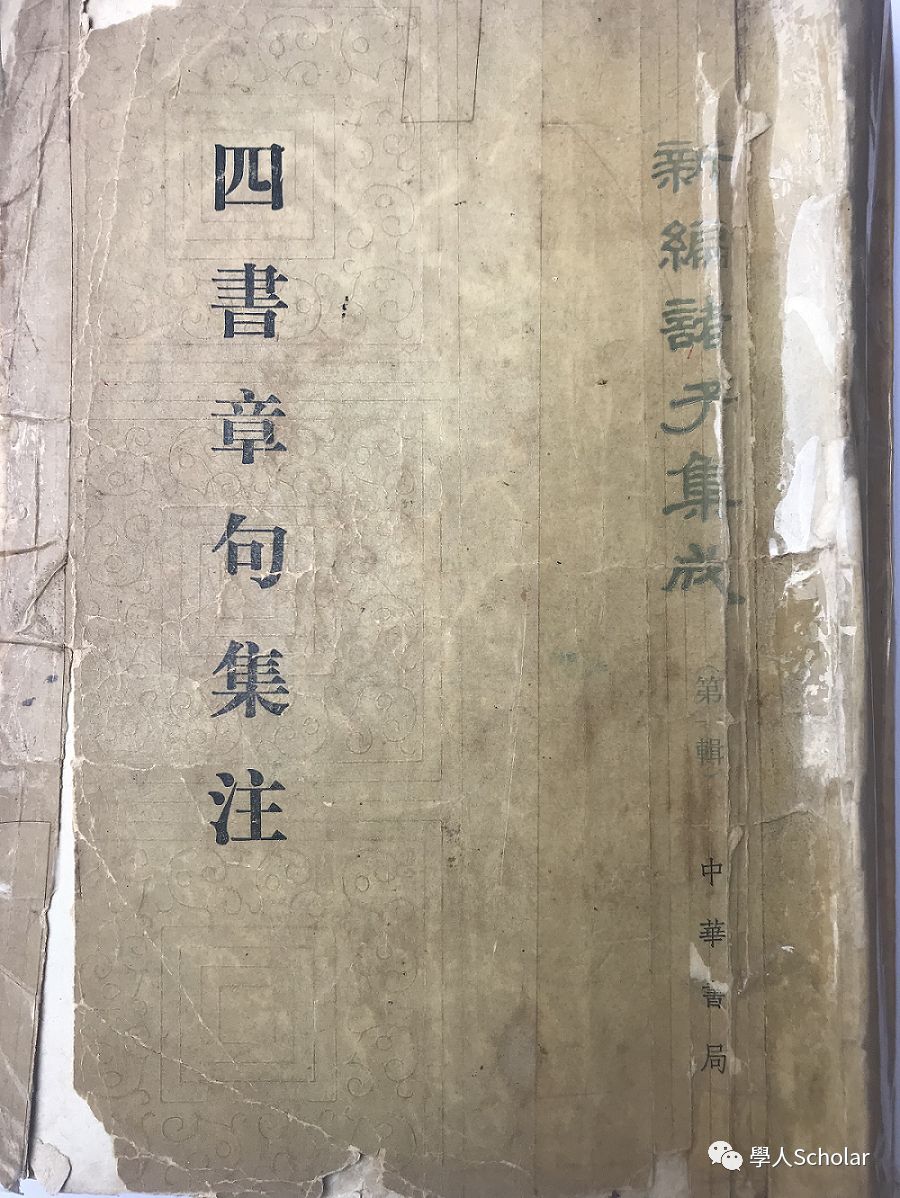 新編諸子集成
第一輯
中華書局
四書章句集注
學人Scholar